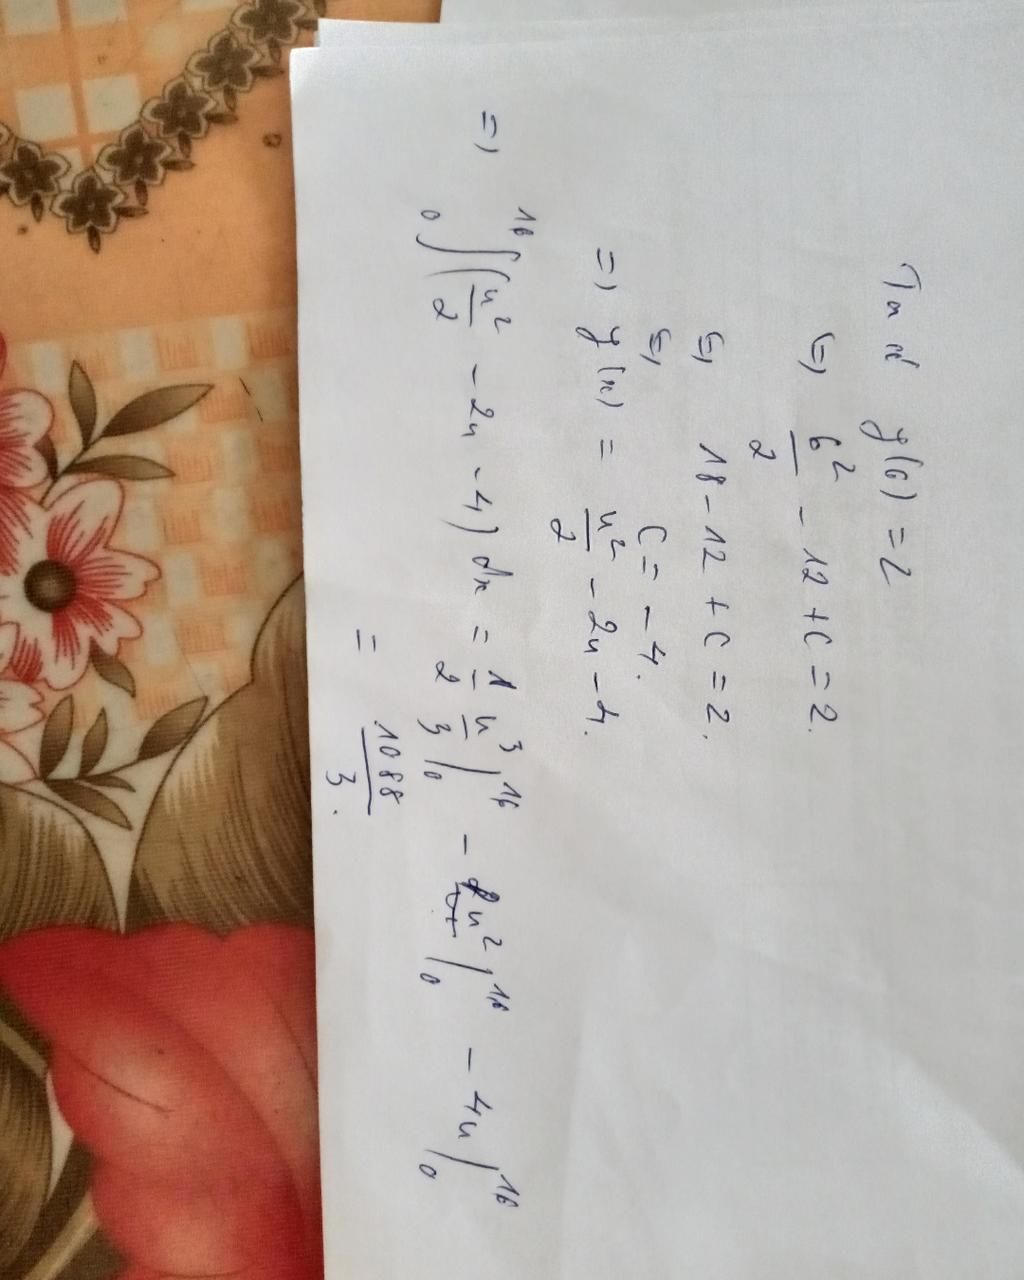 Ta có y(6) = 2
⇔ 6²/2 - 12 + C = 2.
⇔ 18 - 12 + C = 2.
⇔ C = -4.
=> y(x) = x²/2 - 2x - 4.
=> ₀∫¹⁶ (x²/2 - 2x - 4) dx = 1/2 x³/3 |₀¹⁶ - x² |₀¹⁶ - 4x |₀¹⁶
= 1088/3.